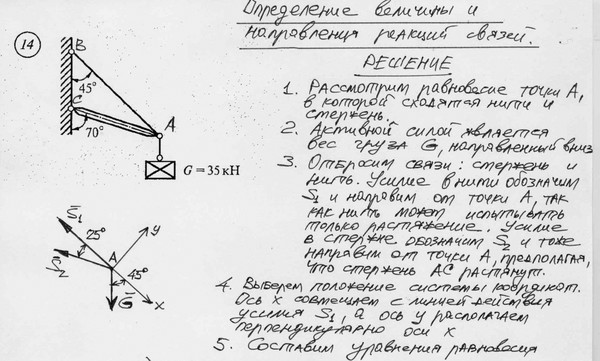 Определение величины и
направления реакций связей.
РЕШЕНИЕ
14
B
45°
C
70°
A
G = 35 кН
1. Рассмотрим равновесие точки А,
в которой сходятся нити и
стержень.
2. Активной силой является
вес груза G, направленный вниз
3. Отбросим связи: стержень и
нить. Усилие в нити обозначим
S1 и направим от точки А, так
как нить может испытывать
только растяжение. Усилие
в стержне обозначим S2 и тоже
направим от точки А, предполагая,
что стержень АС растянут.
4. Выберем положение системы координат.
Ось х совмещаем с линией действия
усилия S1, а ось у располагаем
перпендикулярно оси х
5. Составим уравнения равновесия
S̄1
25°
S̄2
A
y
45°
Ḡ
x